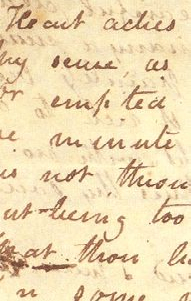 Heart aches
my sense, as
or emptied
e minute
is not throu
ut being too
hat thou li
n some